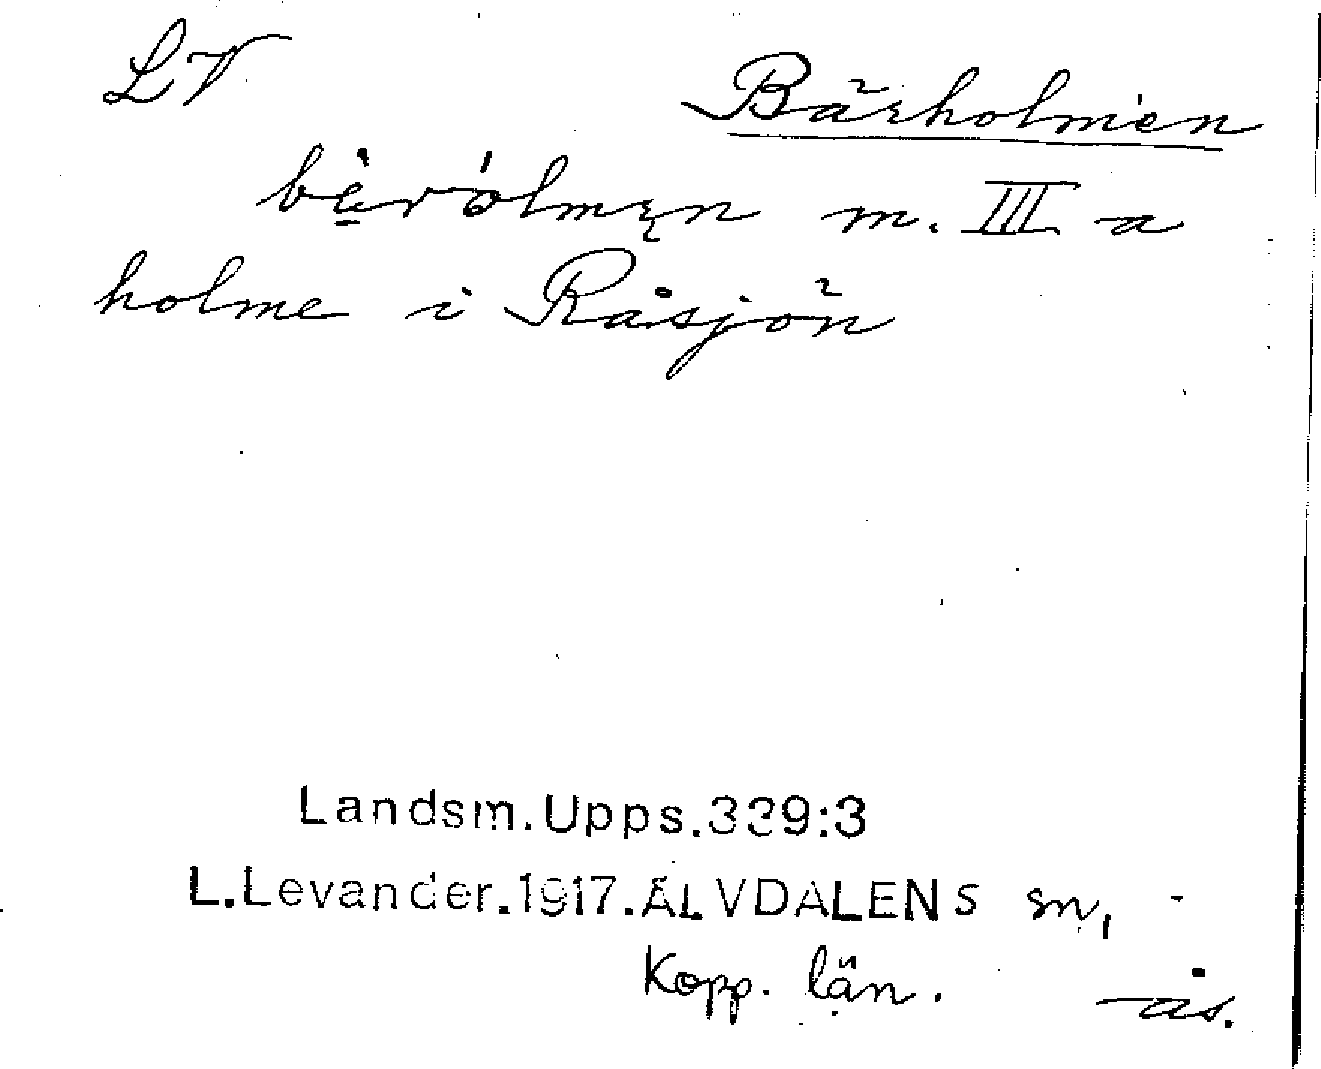 LV
Bärholmen
bèrólmęn m. III a
holme i Råsjön
Landsm.Upps.339:3
L.Levander.1917.ÄLVDALENS sn,
Kopp. län.
ås.